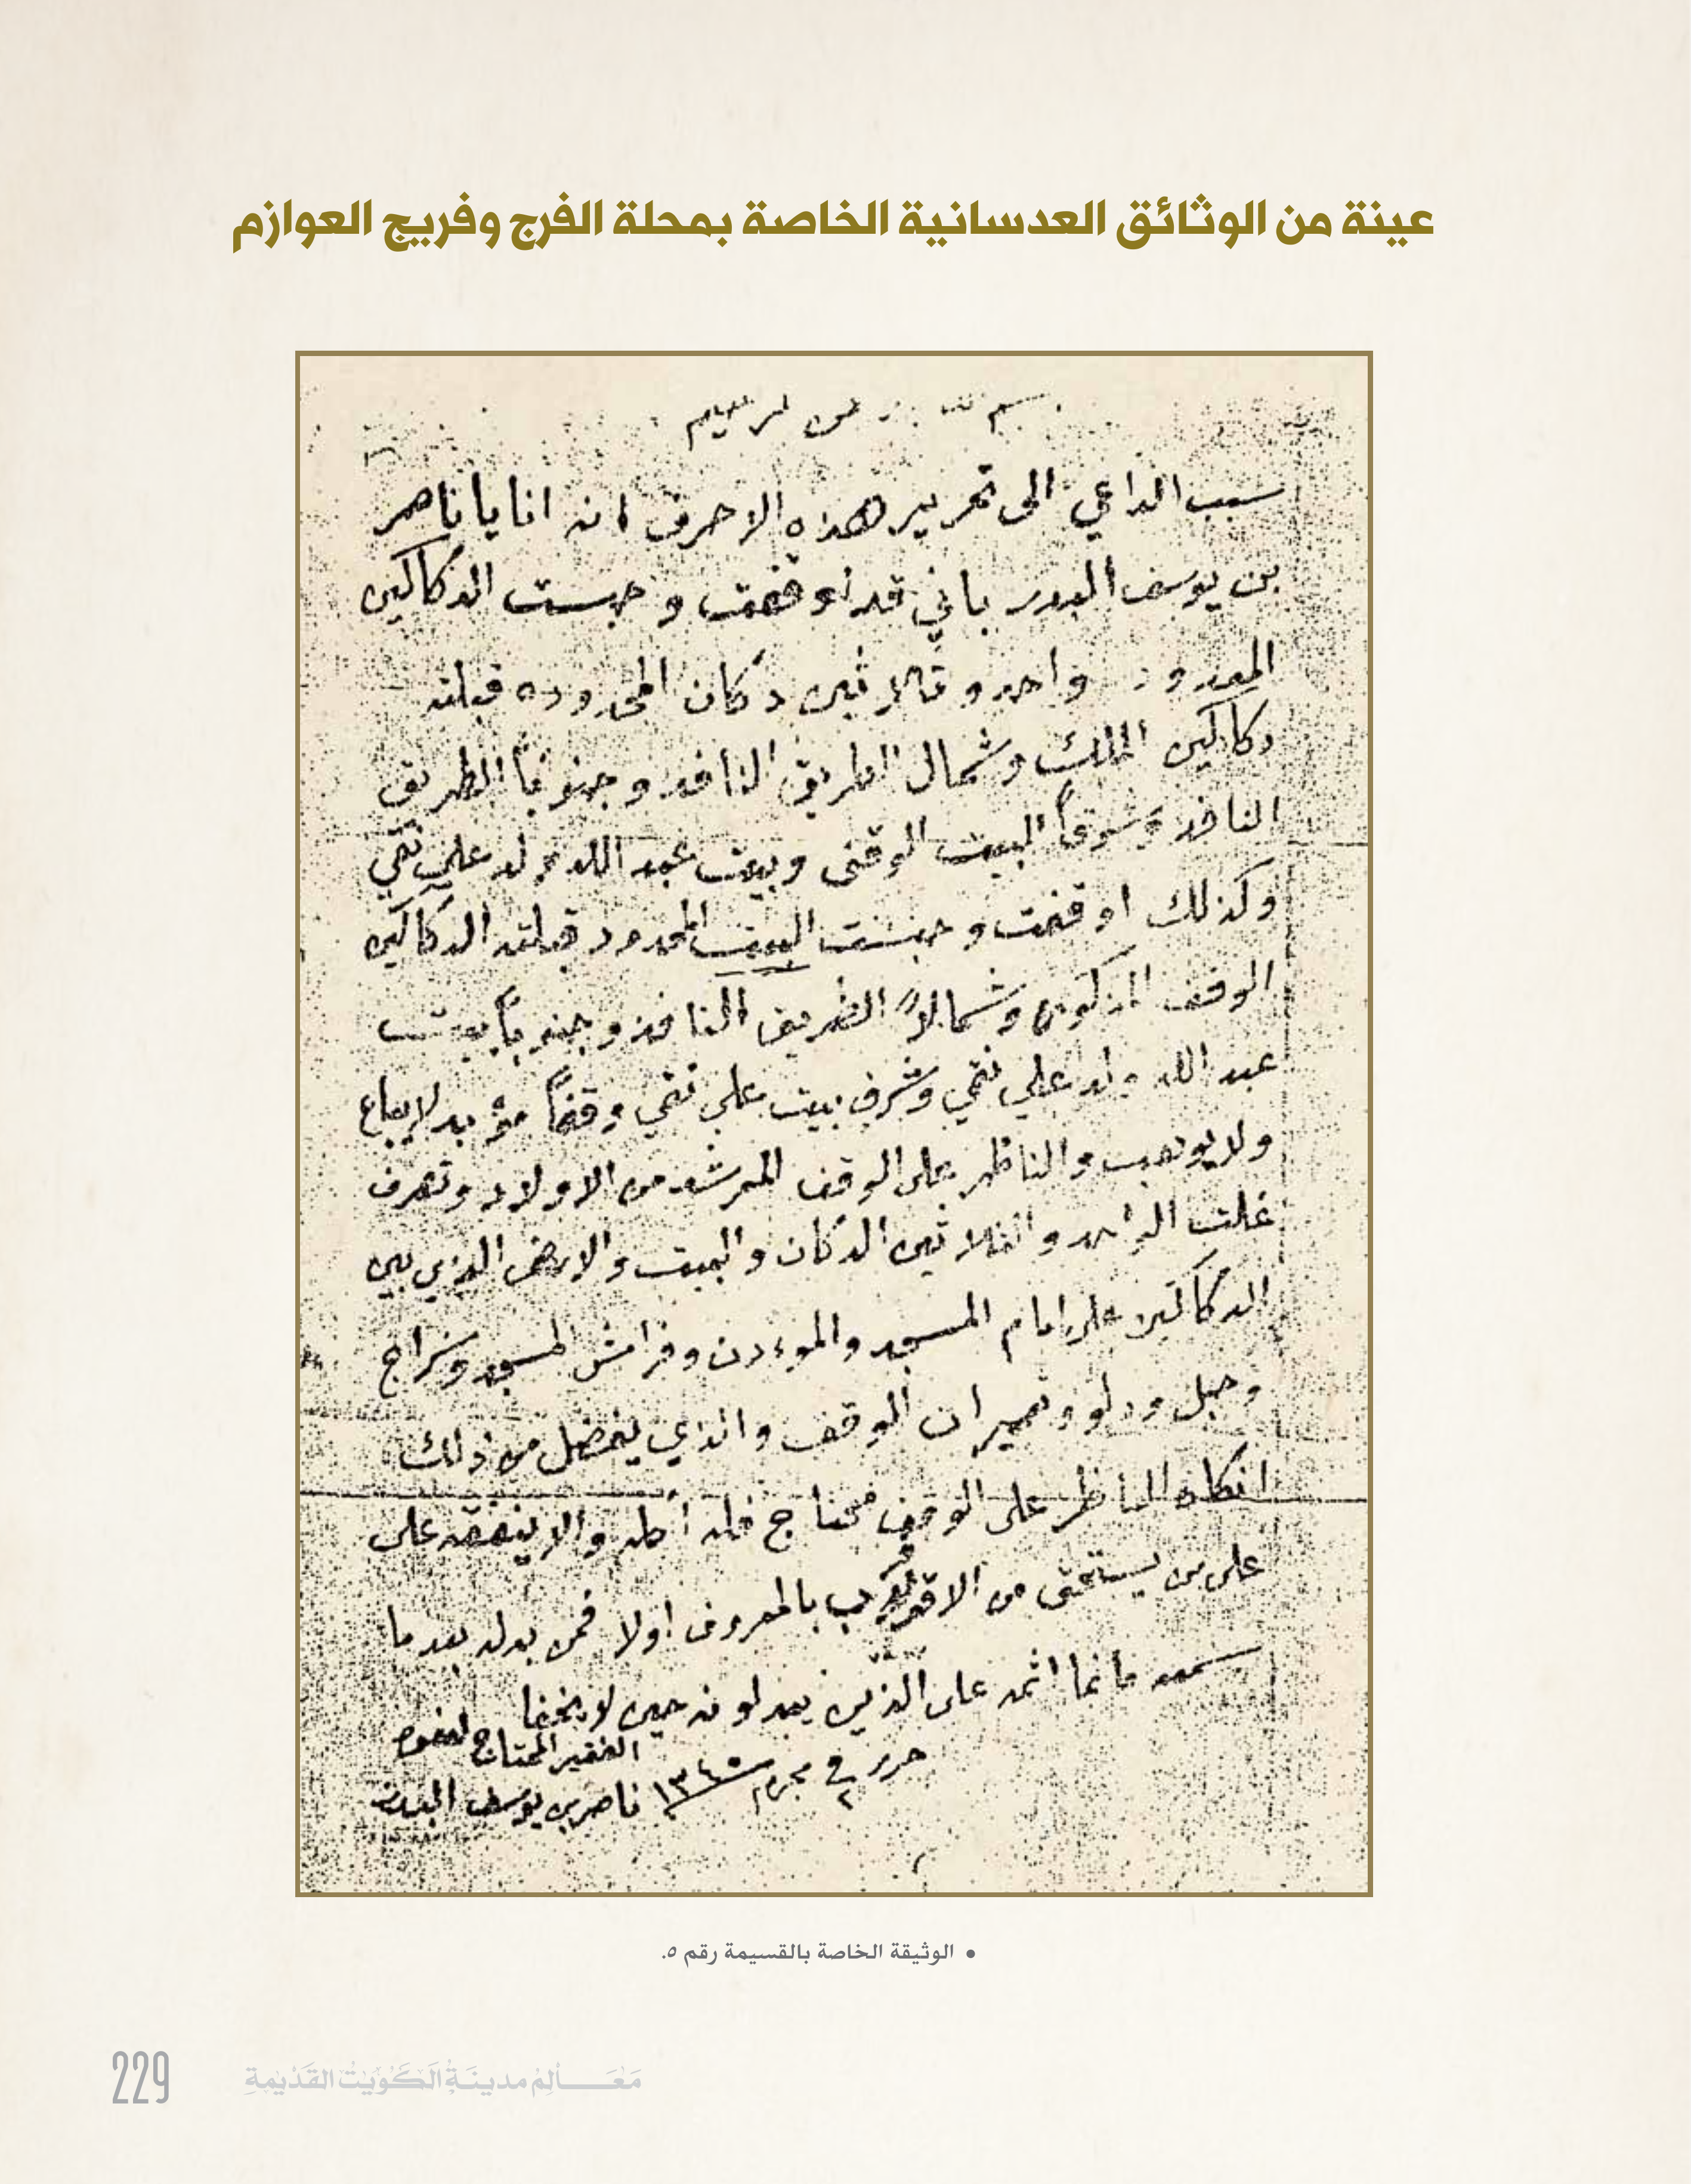 عينة من الوثائق العدسانية الخاصة بمحلة الفرج وفريج العوازم
بسم الله الرحمن الرحيم
سبب الداعي الى تحرير هذه الاحرف انه انا يا ناصر
بن يوسف البدر باني قد اوقفت و حبست الدكاكين
المعدود واحد و ثلاثين دكان المحدوده قبلته
دكاكين الملك وشمال الطريق النافذ و جنوباً الطريق
النافذ وشرقاً البيت الوقف وبيت عبد الله ولد علي نقي
وكذلك اوقفت و حبست البيت المحدود قبلته الدكاكين
الوقف المذكوره وشمالاً الطريق النافذ وجنوباً بيت
عبد الله ولد علي نقي وشرق بيت علي نقي وقفاً لا يباع
ولا يوهب والناظر على الوقف المرشد من الاولاد وتصرف
غلت الواحد والثلاثين الدكان والبيت والارض الذي بين
الدكاكين على امام المسجد والموءدن وفراش المسجد وسراج
وحبل ودلو وتعميران الوقف والذي يفضل من ذلك
انكان الناظر على الوقف محتاج فله اكله والا ينفقه على
على من يستحق من الاقرب بالمعروف اولا فمن بدله بعد ما
سمعه فانما اثمه على الذين يبدلونه حين لا يخفا
الفقير المحتاج لعفوه
حرر في ٢ محرم ١٣٤٥ ناصر بن يوسف البدر
• الوثيقة الخاصة بالقسيمة رقم ٥.
229 مَعَالِم مدينَة الكُوَيْت القَدْيمةِ